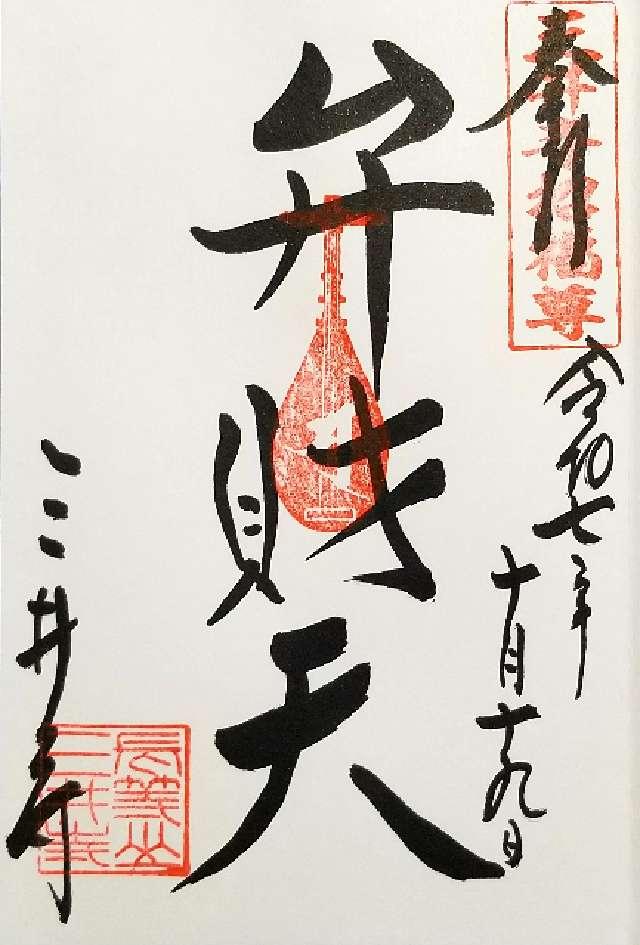 奉拝
令和七年
十月十九日
弁財天
三井寺
長等山
三井寺